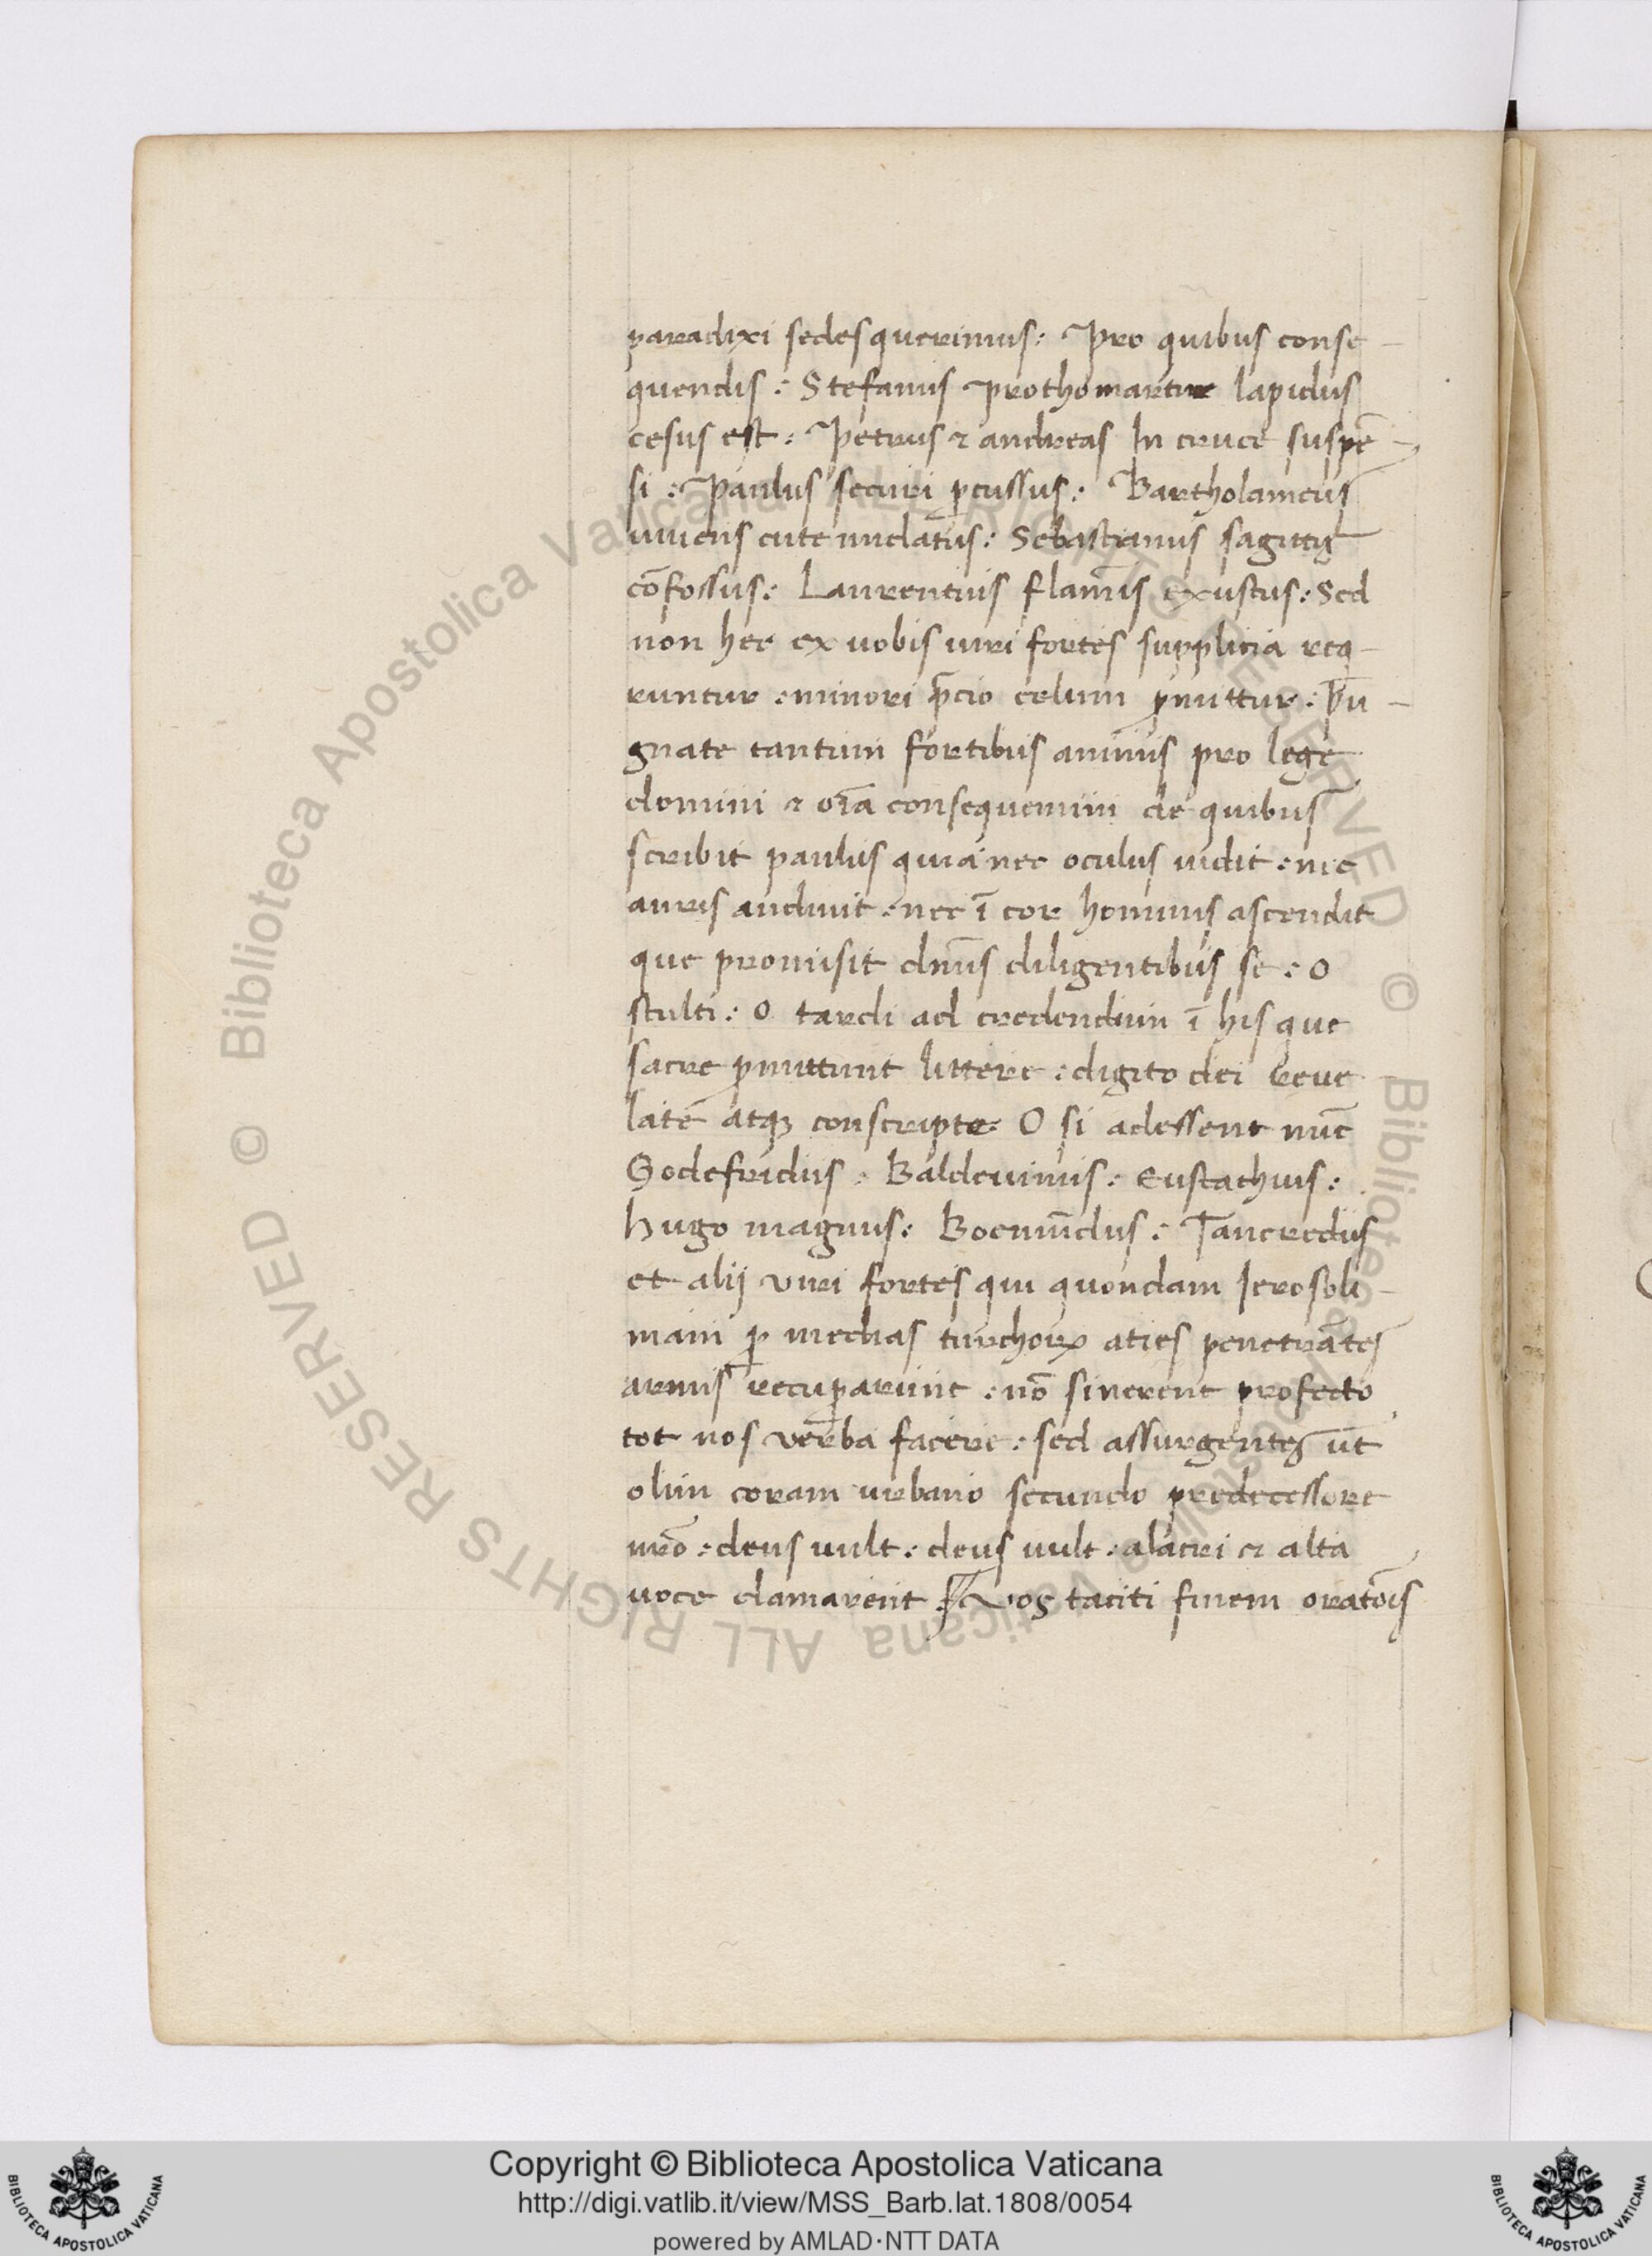 paradixi sedes querimus: Pro quibus conse-
quendis: Stefanus Prothomartir lapidus
cesus est: Petrus & andreas In cruce suspē-
si: Paulus securi ꝑcussus: Bartholameus
uiuens cute nudatus: Sebastianus sagittis
cōfossus: Laurentius flam̄is exustus: Sed
non hec ex uobis uiri fortes supplicia req-
runtur: minori p̄cio celum ꝓmittitur: Pu-
gnate tantum fortibus animis pro lege
domini & oīa consequemini de quibus
scribit paulus quia nec oculus uidit: nec
auris audiuit: nec ī cor hominis ascendit
que promisit dn̄s diligentibus se: O
stulti: O tardi ad credendum ī his que
sacre ꝓmittunt littere: digito dei reue
late atqꝫ conscripte O si adessent nūc
Godefridus: Baldeuinus: Eustachius:
Hugo magnus: Boemūdus: Tancredus
et alij viri fortes qui quondam Ierosoli-
mam ꝑ medias turchoꝝ aties penetrātes
armis recuꝑarunt: nō sinerent profecto
tot nos verba facere: sed assurgentes ut
olim coram urbano secundo predecessore
nr̄o: deus uult: deus uult: alacri & alta
uoce clamarent: Vos taciti finem oratōis
© Biblioteca Apostolica Vaticana ALL RIGHTS RESERVED © Biblioteca Apostolica Vaticana ALL RIGHTS RESERVED
Copyright © Biblioteca Apostolica Vaticana
http://digi.vatlib.it/view/MSS_Barb.lat.1808/0054
powered by AMLAD·NTT DATA
BIBLIOTECA APOSTOLICA VATICANA
BIBLIOTECA APOSTOLICA VATICANA